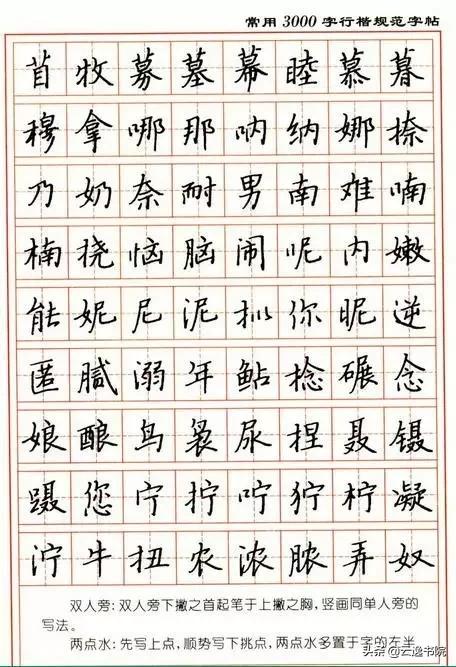 常用3000字行楷规范字帖
苜牧募墓幕睦慕暮
穆拿哪那呐纳娜捺
乃奶奈耐男南难喃
楠挠恼脑闹呢内嫩
能妮尼泥拟你昵逆
匿腻溺年鲇捻碾念
娘酿鸟袅尿捏聂镊
蹑您宁拧咛狞柠凝
泞牛扭农浓脓弄奴
双人旁:双人旁下撇之首起笔于上撇之胸,竖画同单人旁的
写法。
两点水:先写上点,顺势写下挑点,两点水多置于字的左半
头条@云逸书院